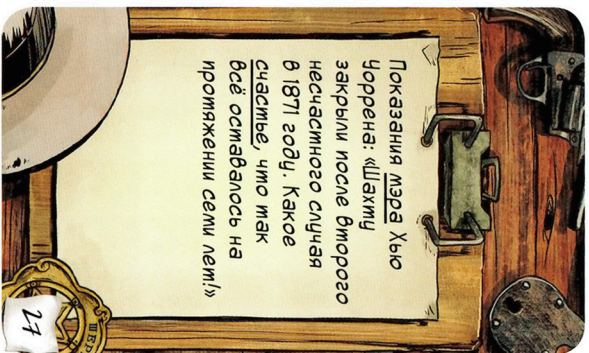 Показания мэра Хью
Уоррена: «Шахту
закрыли после второго
несчастного случая
в 1871 году. Какое
счастье, что так
всё оставалось на
протяжении семи лет!»
ШЕР
27